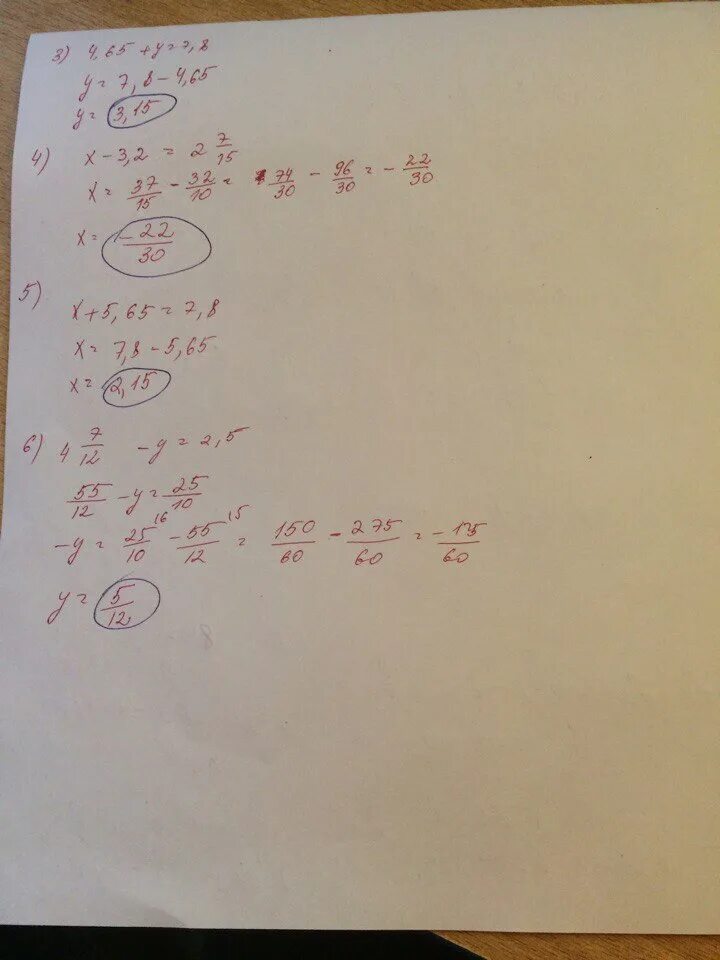 3) 4,65 + y = 7,8
y = 7,8 - 4,65
y = 3,15
4) x - 3,2 = 2 7/15
x = 37/15 - 32/10 = 74/30 - 96/30 = - 22/30
x = -22/30
5) x + 5,65 = 7,8
x = 7,8 - 5,65
x = 2,15
6) 4 7/12 - y = 2,5
55/12 - y = 25/10
-y = 25/10 ^(6 - 55/12 ^(5 = 150/60 - 275/60 = -175/60
y = 5/12